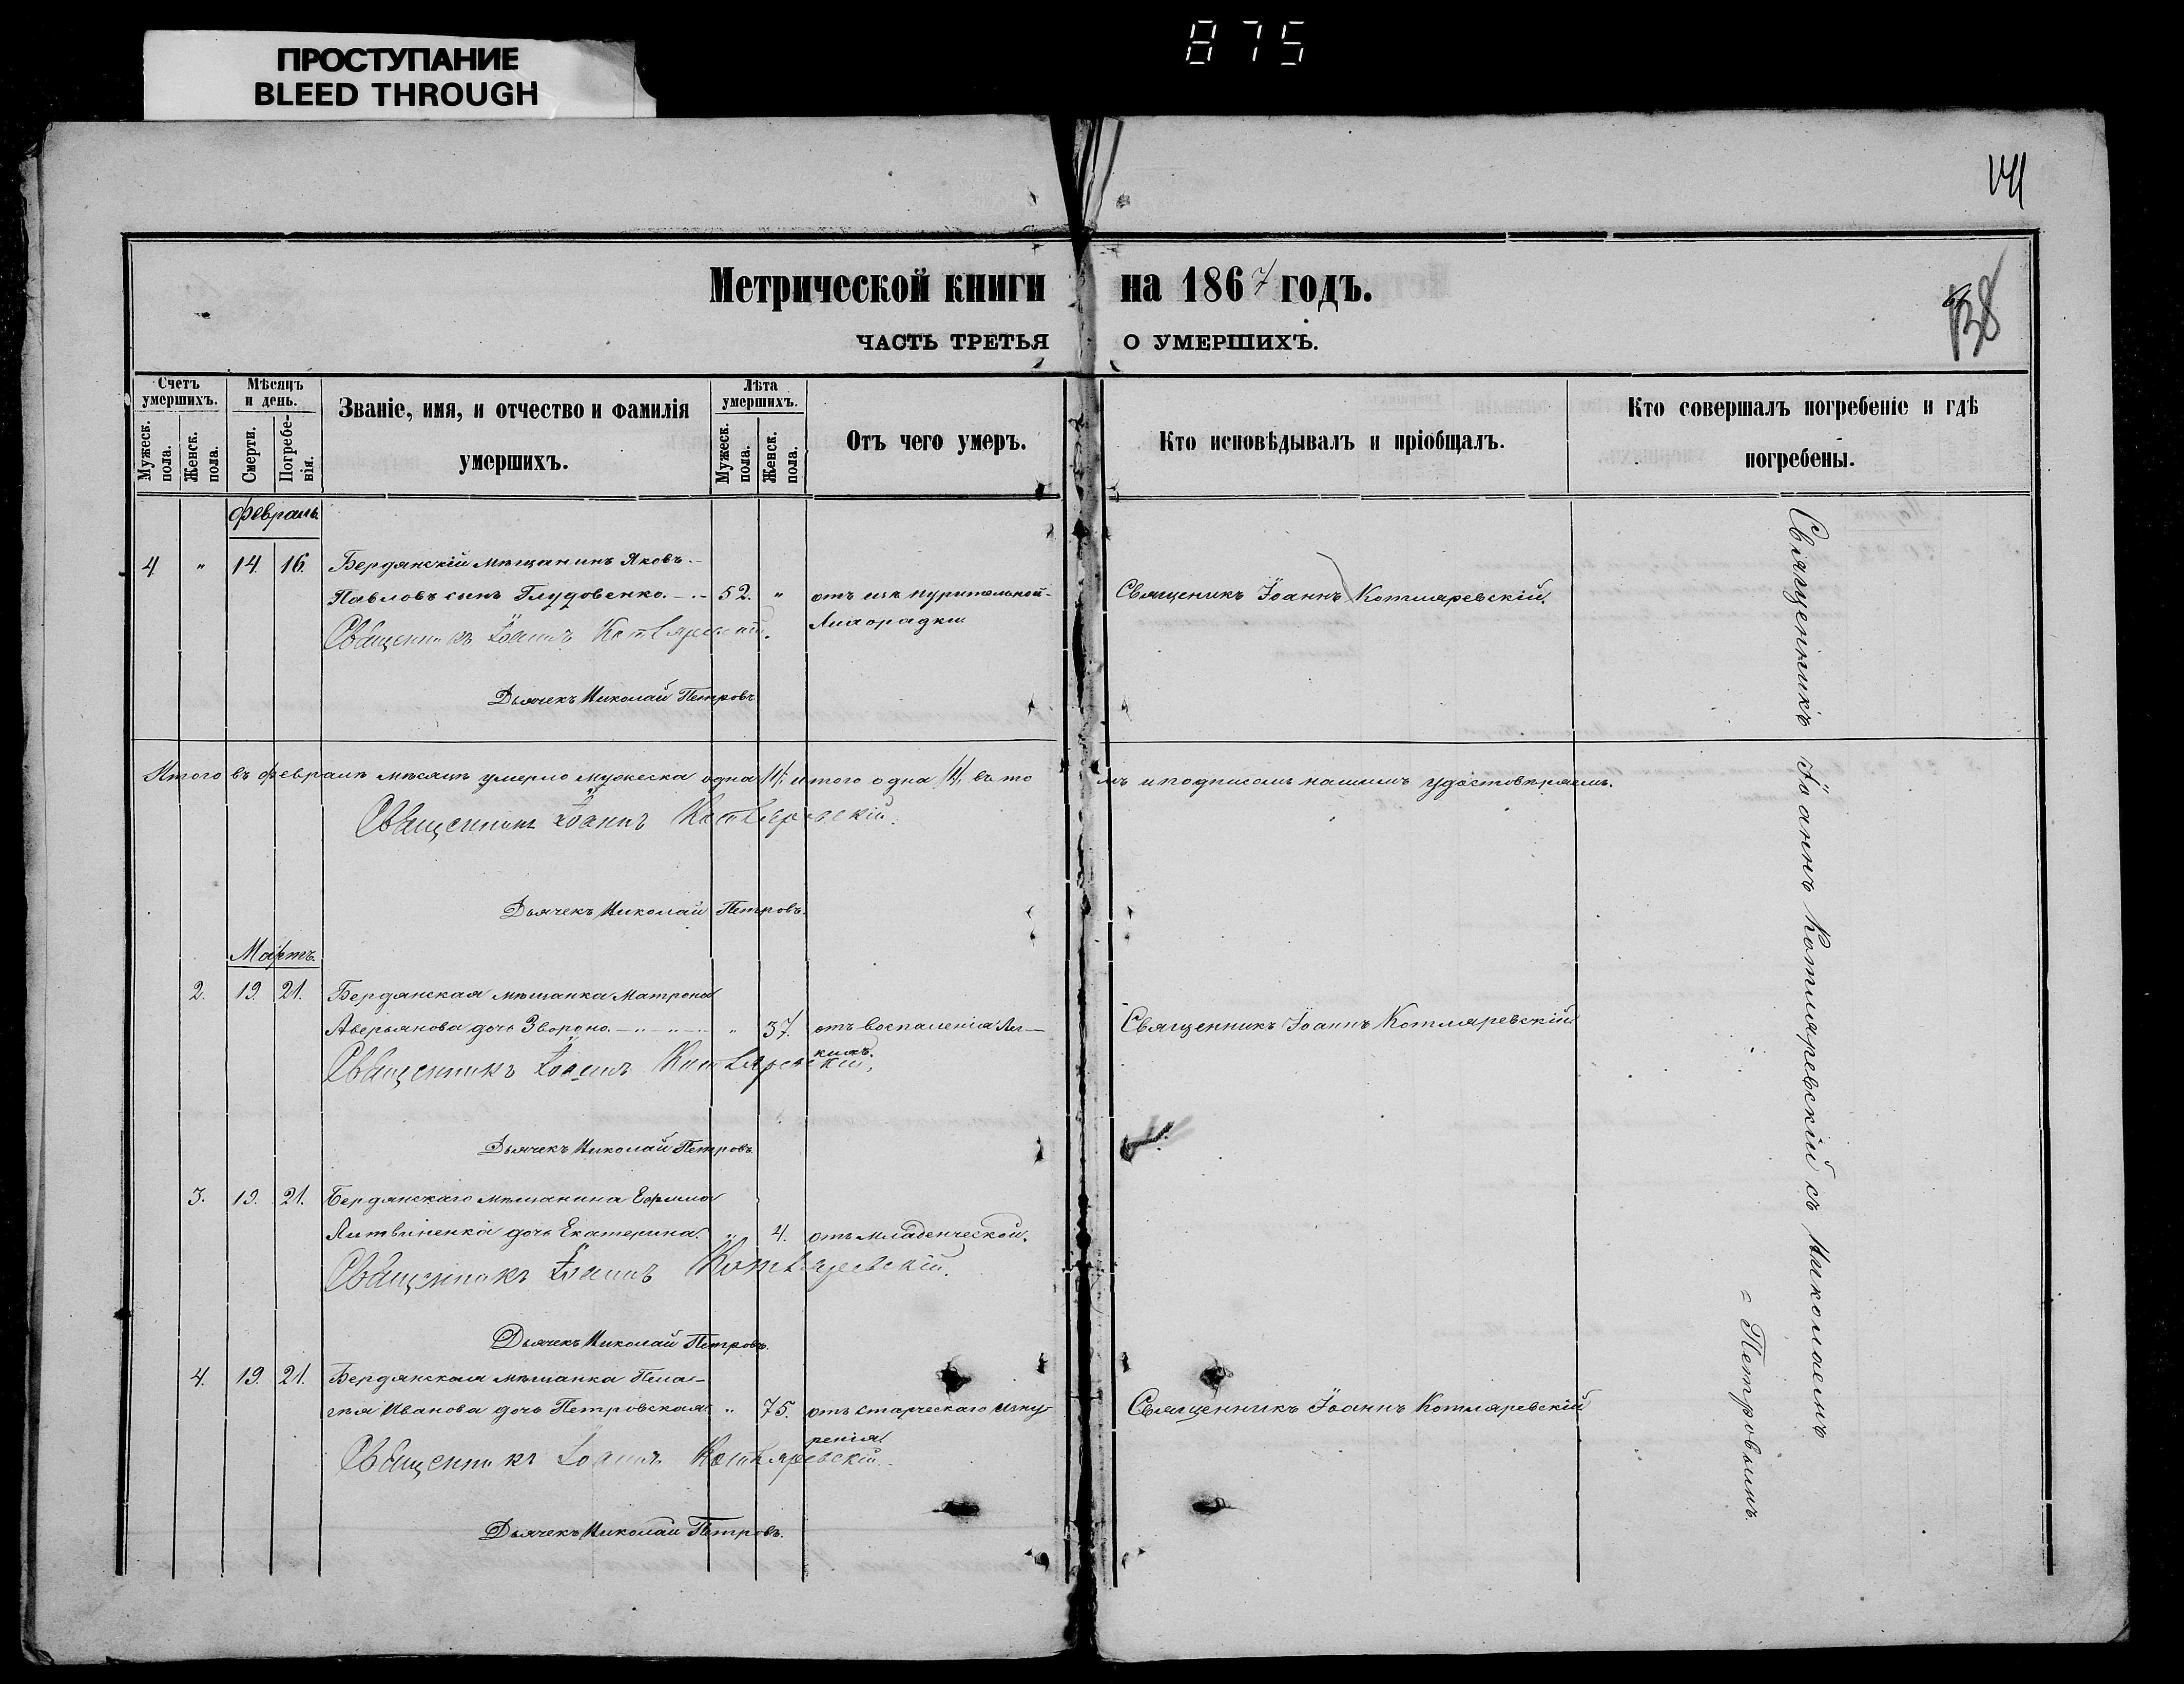 875
ПРОСТУПАНИЕ
BLEED THROUGH
141
138
Метрической книги на 1867 годъ.
ЧАСТЬ ТРЕТЬЯ О УМЕРШИХЪ.
Счетъ умершихъ.
Мужеск. пола.
Женск. пола.
Мѣсяцъ и день.
Смерти.
Погребе-нія.
Званіе, имя, и отчество и фамилія
умершихъ.
Лѣта умершихъ.
Мужеск. пола.
Женск. пола.
Отъ чего умеръ.
Кто исповѣдывалъ и пріобщалъ.
Кто совершалъ погребеніе и гдѣ
погребены.
Февраль
4 " 14. 16. Бердянскій мѣщанинъ Яковъ
Павловъ сынъ Глудовенко. 52. " отъ изнурительной Священикъ Іоаннъ Котляревскій.
Лихорадки
Священникъ Іоаннъ Котляревскій.
Дьячекъ Николай Петровъ
Итого въ февралѣ мѣсяцѣ умерло мужеска одна /1/, итого одна /1/, въ томъ и подписомъ нашимъ удостовѣряемъ.
Священникъ Іоаннъ Котляревскій.
Дьячекъ Николай Петровъ.
Мартъ.
2. 19. 21. Бердянская мѣщанка Матрона
Аверьянова дочь Звороно. " 37. отъ воспаленія Лег- Священникъ Іоаннъ Котляревскій
кихъ.
Священникъ Іоаннъ Котляревскій,
Дьячекъ Николай Петровъ.
3. 19. 21. Бердянскаго мѣщанина Ефима
Литвиненка дочь Екатерина. " 4. отъ младенческой.
Священникъ Іоаннъ Котляревскій.
Дьячекъ Николай Петровъ.
4. 19. 21. Бердянская мѣщанка Пела-
гѣя Иванова дочь Петровская " 75. отъ старческаго изну Священникъ Іоаннъ Котляревскій
ренія
Священникъ Іоаннъ Котляревскій.
Дьячекъ Николай Петровъ.
Священникъ Іоаннъ Котляревскій съ Николаемъ
= Петровымъ.